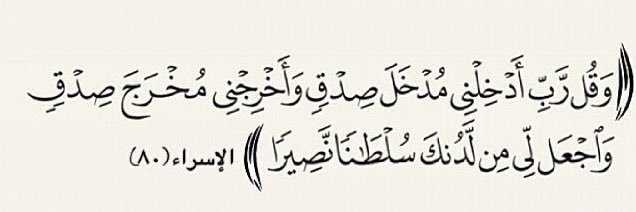 ﴿ وَقُل رَّبِّ أَدْخِلْنِى مُدْخَلَ صِدْقٍ وَأَخْرِجْنِى مُخْرَجَ صِدْقٍ
وَٱجْعَل لِّى مِن لَّدُنكَ سُلْطَـٰنًا نَّصِيرًا ﴾ الإسراء (٨٠)